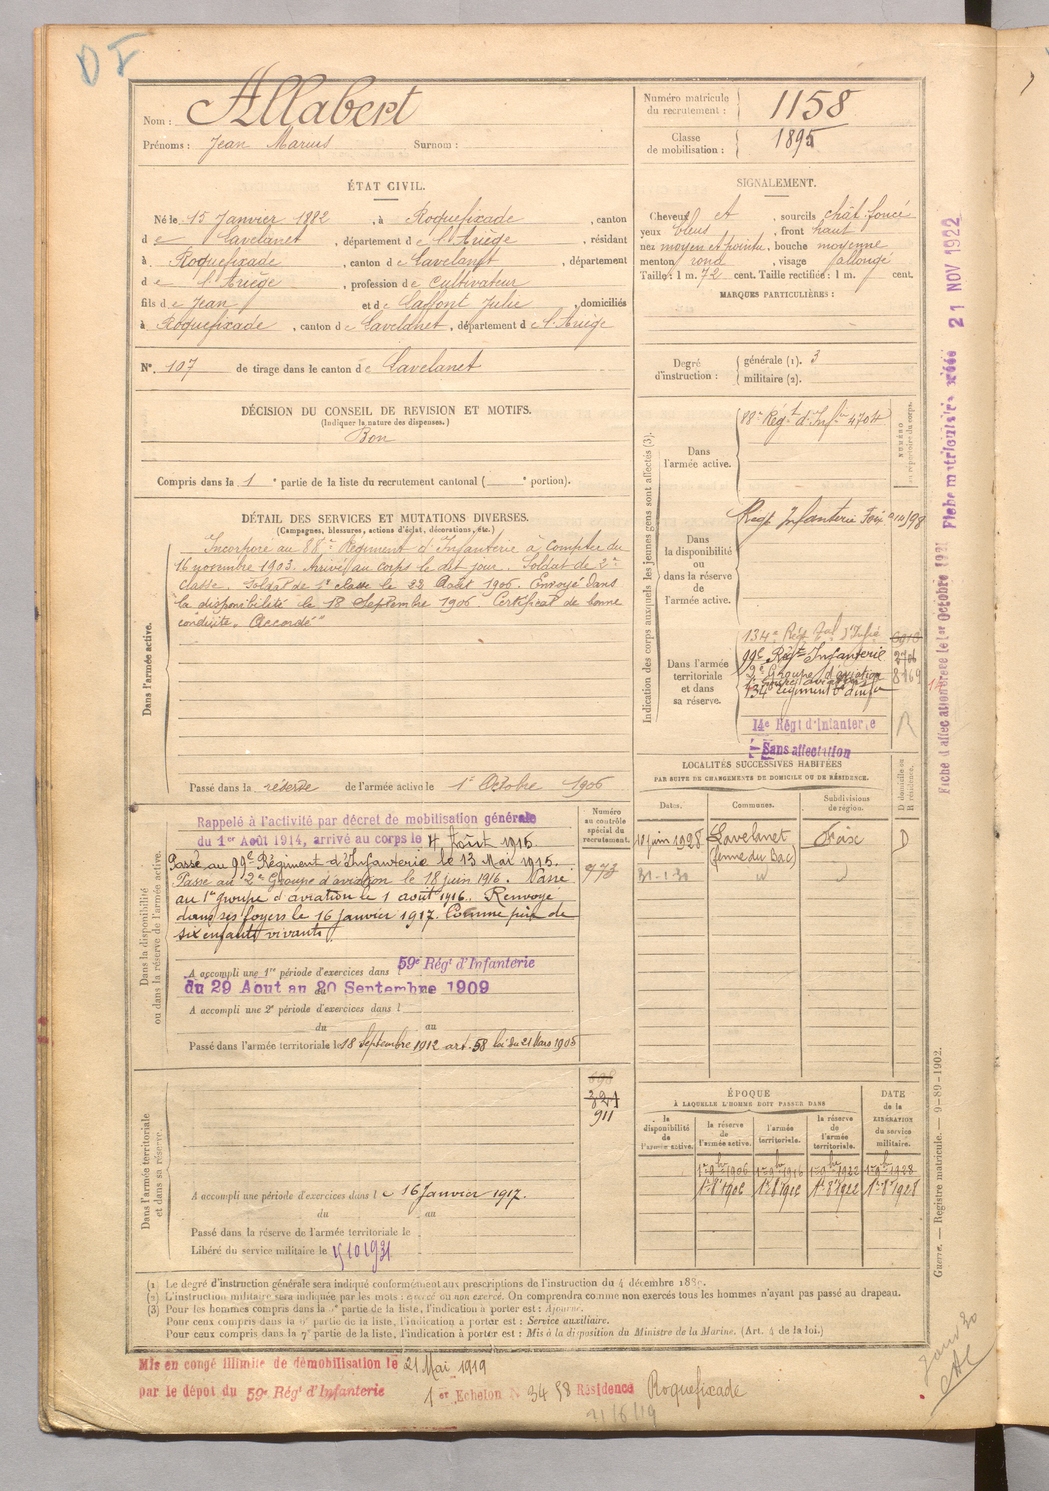 DF
Nom : Allabert
Prénoms : Jean Marius Surnom :
Numéro matricule du recrutement : 1158
Classe de mobilisation : 1895
ÉTAT CIVIL.
Né le 15 Janvier 1882, à Roquefixade, canton
de Lavelanet, département de l'Ariège, résidant
à Roquefixade, canton de Lavelanet, département
de l'Ariège, profession de Cultivateur
fils de Jean et de Laffont Julie, domiciliés
à Roquefixade, canton de Lavelanet, département de l'Ariège
N°. 107 de tirage dans le canton de Lavelanet
DÉCISION DU CONSEIL DE REVISION ET MOTIFS.
(Indiquer la nature des dispenses.)
Bon
Compris dans la 1e partie de la liste du recrutement cantonal ( e portion).
SIGNALEMENT.
Cheveux et, sourcils chât. foncé
yeux bleus, front haut
nez moyen et pointu, bouche moyenne
menton rond, visage allongé
Taille : 1 m. 72 cent. Taille rectifiée : 1 m. cent.
MARQUES PARTICULIÈRES :
Degré d'instruction : générale (1). 3
militaire (2).
DÉTAIL DES SERVICES ET MUTATIONS DIVERSES.
(Campagnes, blessures, actions d'éclat, décorations, etc.)
Dans l'armée active.
Incorporé au 88e Régiment d'Infanterie à compter du
16 novembre 1903. Arrivé au corps le dit jour. Soldat de 2e
classe. Soldat de 1e classe le 22 Août 1906. Envoyé dans
la disponibilité le 18 Septembre 1906. Certificat de bonne
conduite "Accordé"
Passé dans la réserve de l'armée active le 1er Octobre 1906
Indication des corps auxquels les jeunes gens sont affectés (3).
NUMÉRO au répertoire du corps.
Dans l'armée active.
88e Régt d'Inf. 4704
Dans la disponibilité ou dans la réserve de l'armée active.
Régt Infanterie Foix
Dans l'armée territoriale et dans sa réserve.
134e Régt Tal d'Infie
99e Régt Infanterie
2e Groupe d'aviation 8169
134e régiment d'infie
14e Régt d'Infanterie R
Sans affectation
LOCALITÉS SUCCESSIVES HABITÉES
PAR SUITE DE CHANGEMENTS DE DOMICILE OU DE RÉSIDENCE.
Dates. Communes. Subdivisions de région. D domicile ou R résidence.
Lavelanet Foix D
Dans la disponibilité ou dans la réserve de l'armée active.
Numéro au contrôle spécial du recrutement.
Rappelé à l'activité par décret de mobilisation générale
du 1er Août 1914, arrivé au corps le 4 Août 1915.
Passé au 99e Régiment d'Infanterie le 13 Mai 1915.
Passé au 2e Groupe d'aviation le 18 juin 1916. Passé
au 1er groupe d'aviation le 1 août 1916. Renvoyé
dans ses foyers le 16 janvier 1917. Comme père de
six enfants vivants
A accompli une 1re période d'exercices dans l 59e Régt d'Infanterie
du 29 Aout au 20 Septembre 1909
A accompli une 2e période d'exercices dans l
du au
Passé dans l'armée territoriale le 18 Septembre 1912 art. 58 loi du 21 Mars 1905
Dans l'armée territoriale et dans sa réserve.
321
911
A accompli une période d'exercices dans l 16 Janvier 1917.
du au
Passé dans la réserve de l'armée territoriale le
Libéré du service militaire le 15 10 1931
ÉPOQUE
À LAQUELLE L'HOMME DOIT PASSER DANS
la disponibilité de l'armée active. la réserve de l'armée active. l'armée territoriale. la réserve de l'armée territoriale. DATE de la LIBÉRATION du service militaire.
1er 9bre 1906 1er 9bre 1916 1er 9bre 1922 1er 9bre 1928
(1) Le degré d'instruction générale sera indiqué conformément aux prescriptions de l'instruction du 4 décembre 1889.
(2) L'instruction militaire sera indiquée par les mots : exercé ou non exercé. On comprendra comme non exercés tous les hommes n'ayant pas passé au drapeau.
(3) Pour les hommes compris dans la 5e partie de la liste, l'indication à porter est : Ajourné.
Pour ceux compris dans la 6e partie de la liste, l'indication à porter est : Service auxiliaire.
Pour ceux compris dans la 7e partie de la liste, l'indication à porter est : Mis à la disposition du Ministre de la Marine. (Art. 4 de la loi.)
Mis en congé illimité de démobilisation le 21 Mai 1919
par le dépôt du 59e Régt d'Infanterie 1er Echelon N° 3458 Résidence Roquefixade
21/6/19
Fiche matriculaire créée 21 NOV 1922
Guerre. — Registre matricule. — 9-89-1902.